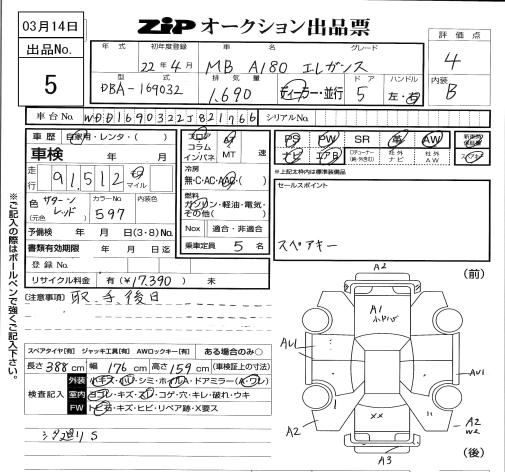 03月14日
ZIP オークション出品票
出品No.
5
年式 初年度登録 車名 グレード
22年4月 MB A180 エレガンス
型式 排気量 ドア ハンドル
DBA-169032 1.690 ディーラー・並行 5 左・右
評価点
4
内装
B
車台No. WDD1690322J821766 シリアルNo.
車歴 自家用・レンタ・( )
車検 年 月
走行 91,512 km マイル
色 (元色) サターンレッド カラーNo. 597 内装色
予備検 年 月 日(3・8)No.
書類有効期限 年 月 日迄
登録No.
リサイクル料金 有(¥17.390) 未
フロア コラム インパネ AT MT 速
冷房
無・C・AC・AAC・( )
燃料
ガソリン・軽油・電気・その他( )
Nox 適合・非適合
乗車定員 5名
PS PW SR 革 AW
ナビ エアB 社外ナビ 社外AW
※上記太枠内は標準装備品
セールスポイント
スペアキー
(注意事項) 取、手、後日
※ご記入の際はボールペンで強くご記入下さい。
スペアタイヤ[有] ジャッキ工具[有] AWロックキー[有] ある場合のみ○
長さ388cm 幅176cm 高さ159cm (車検証上の寸法)
検査記入
外装 小キズ・凹・シミ・ホイルA・ドアミラー(A・ワレ)
室内 ヨゴレ・キズ・スレ・コゲ・穴・キレ・破れ・ウキ
FW トビ石・キズ・ヒビ・リペア跡・X要ス
シグ廻りS
(前)
A2
A1
AU1
AU1
XX
A2
A2
W2
A3
(後)